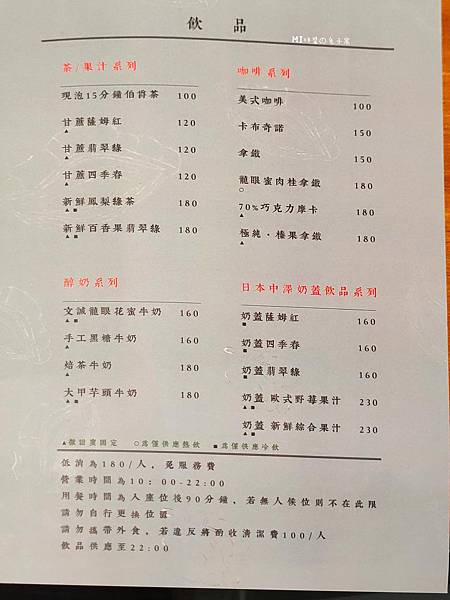 飲 品
茶/果汁系列
現泡15分鐘伯爵茶 100
甘蔗薩姆紅 120
▲
甘蔗翡翠綠 120
▲
甘蔗四季春 120
▲
新鮮鳳梨綠茶 180
▲■
新鮮百香果翡翠綠 180
▲■
咖啡系列
美式咖啡 100
卡布奇諾 150
拿鐵 150
龍眼蜜肉桂拿鐵 180
○
70%巧克力摩卡 180
▲
極純・榛果拿鐵 180
▲
醇奶系列
文誠龍眼花蜜牛奶 160
▲■
手工黑糖牛奶 160
▲
焙茶牛奶 180
▲
大甲芋頭牛奶 180
▲■
日本中澤奶蓋飲品系列
奶蓋薩姆紅 160
■
奶蓋四季春 160
■
奶蓋翡翠綠 160
■
奶蓋 歐式野莓果汁 230
▲■
奶蓋 新鮮綜合果汁 230
▲■
▲微甜度固定 ○為僅供應熱飲 ■為僅供應冷飲
低消為180/人，免服務費
營業時間為10：00-22:00
用餐時間為入座位後90分鐘，若無人候位則不在此限
請勿自行更換位置
請勿攜帶外食，若違反將酌收清潔費100/人
飲品供應至22:00